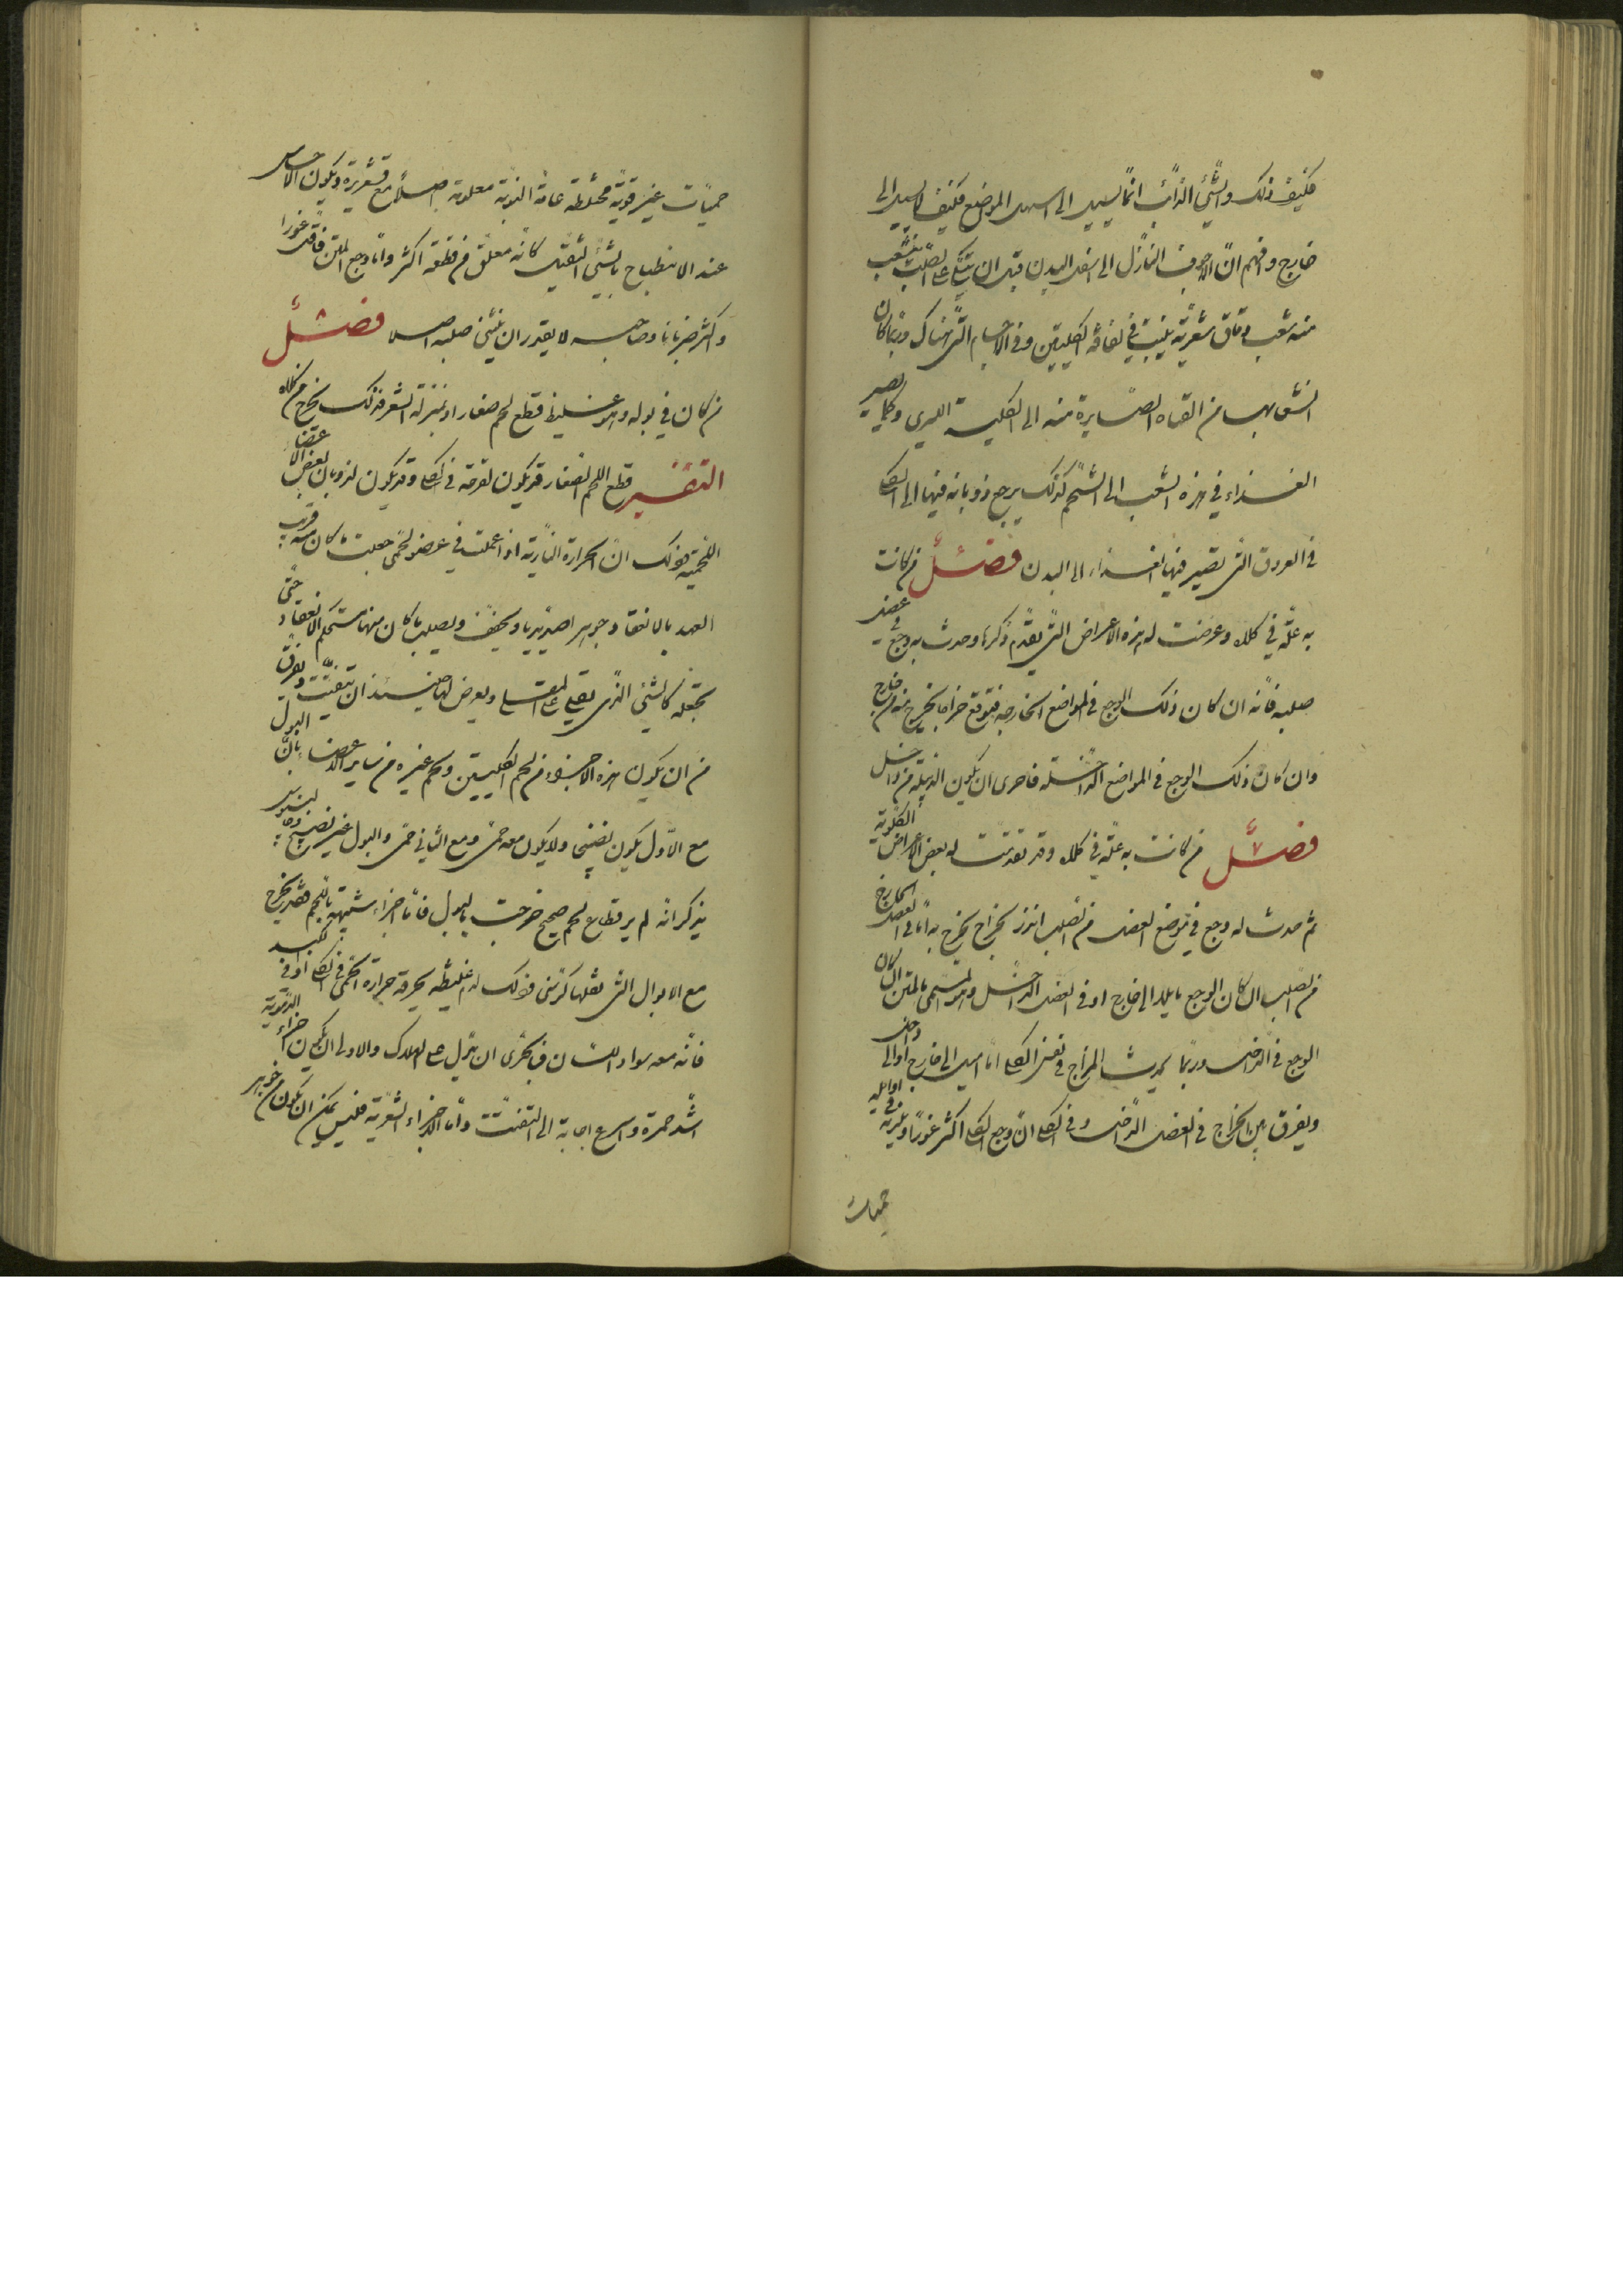 فكيف ذلك والشئ الذائب انما يسيل الى اسهل المواضع فكيف لا يسيل الى
خارج وافهم ان الاجوف النازل الى اسفل البدن قبل ان يتكئ على الصلب يتشعب
منه شعب دقاق شعرية ينبت في لفافة الكليتين وفي الاجسام التى هناك وربما كان
انشعابها من القناة الصايرة منه الى الكلية اليسرى وكما يصير
الغذاء في هذه الشعب الى الشحم كذلك يرجع ذوبانه فيها الى الكلى
في العروق التى يصير فيها الغذاء الى البدن فصل من كانت
به علة في كلاه وعرضت له هذه الاعراض التى تقدم ذكرها وحدث به وجع في عضل
صلبه فانه ان كان ذلك الوجع في المواضع الخارجه فتوقع خراجا يخرج به من خارج
وان كان ذلك الوجع في المواضع الداخلة فاحرى ان يكون الدبيلة من داخل
فصل ٧ من كانت به علة في كلاه وقد تقدمت له بعض الاعراض الكلوية
ثم حدث له وجع في موضع العضل من الصلب انذر بخراج يخرج به اما في العضل الخارج
من الصلب ان كان الوجع مايلا الى خارج او في العضل الداخل وهو المسمى بالمتن ان كان
الوجع في الداخل وربما يحدث الخراج في نفس الكلى اما اميل الى خارج او الى داخل
ويفرق بين الخراج في العضل الداخل وفي الكلى ان وجع الكلى اكثر غورا ويلزمه في اوايله
حميات
حميات غير قوية مختلطة عادمة النوبة معلومة اصلا مع قشعريرة ويكون الاحساس
عند الانبطاح بالشئ الثقيل كانه معلق من قطنه اكثر واما وجع المتن فاقل غورا
واكثر ضربانا وصاحبه لا يقدر ان يثنى صلبه اصلا فصل ٨
من كان في بوله وهو غليظ قطع لحم صغار او بمنزلة الشعر فذلك يخرج من كلاه
التفسير قطع اللحم الصغار قد يكون لقرحة في الكلى وقد يكون لذوبان بعض الاعضا
اللحمية وذلك ان الحرارة النارية اذا عملت في عضو لحمى جعلت ما كان منه قريب
العهد بالانعقاد جوهرا صديديا ويجفف ويصلب ما كان منها مستحكم الانعقاد حتى
تجعله كالشئ الذى يقلى على المقلى ويعرض لها حينئذ ان تتفتت ويفرق
من ان يكون هذه الاجزاء من لحم الكليتين ولحم غيره من ساير الاعضا بان البول
مع الاول يكون نضيجا ولا يكون معه حمى ومع الثاني حمى والبول غير نضيج وجالينوس
يذكر انه لم ير قطاع لحم صحيح خرجت بالبول فاما اجزاء شبيهة باللحم فقد يخرج
مع الابوال التى ثقلها كرسنى وذلك لدم غليظ يحرقه حرارة الحمى في الكلى او في الكبد
فانه معه سواد اللسان فبالحرى ان يدل على الهلاك والاولى ان يكون اجزاء الدموية
اشد حمرة واسرع اجابة الى التفتت واما الاجزاء الشعرية فليس يمكن ان يكون من جوهر